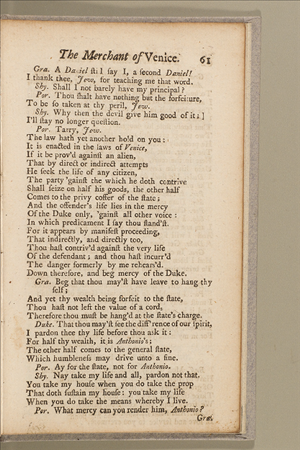 The Merchant of Venice. 61
Gra. A Daniel still say I, a second Daniel!
I thank thee, Jew, for teaching me that word.
Shy. Shall I not barely have my principal?
Por. Thou shalt have nothing but the forfeiture,
To be so taken at thy peril, Jew.
Shy. Why then the devil give him good of it:
I'll stay no longer question.
Por. Tarry, Jew.
The law hath yet another hold on you:
It is enacted in the laws of Venice,
If it be prov'd against an alien,
That by direct or indirect attempts
He seek the life of any citizen,
The party 'gainst the which he doth contrive
Shall seize on half his goods, the other half
Comes to the privy coffer of the state;
And the offender's life lies in the mercy
Of the Duke only, 'gainst all other voice:
In which predicament I say thou stand'st.
For it appears by manifest proceeding,
That indirectly, and directly too,
Thou hast contriv'd against the very life
Of the defendant; and thou hast incurr'd
The danger formerly by me rehears'd.
Down therefore, and beg mercy of the Duke.
Gra. Beg that thou may'st have leave to hang thy
self;
And yet thy wealth being forfeit to the state,
Thou hast not left the value of a cord,
Therefore thou must be hang'd at the state's charge.
Duke. That thou may'st see the diff'rence of our spirit,
I pardon thee thy life before thou ask it:
For half thy wealth, it is Anthonio's;
The other half comes to the general state,
Which humbleness may drive unto a fine.
Por. Ay for the state, not for Anthonio.
Shy. Nay take my life and all, pardon not that.
You take my house when you do take the prop
That doth sustain my house: you take my life
When you do take the means whereby I live.
Por. What mercy can you render him, Anthonio?
Gra.